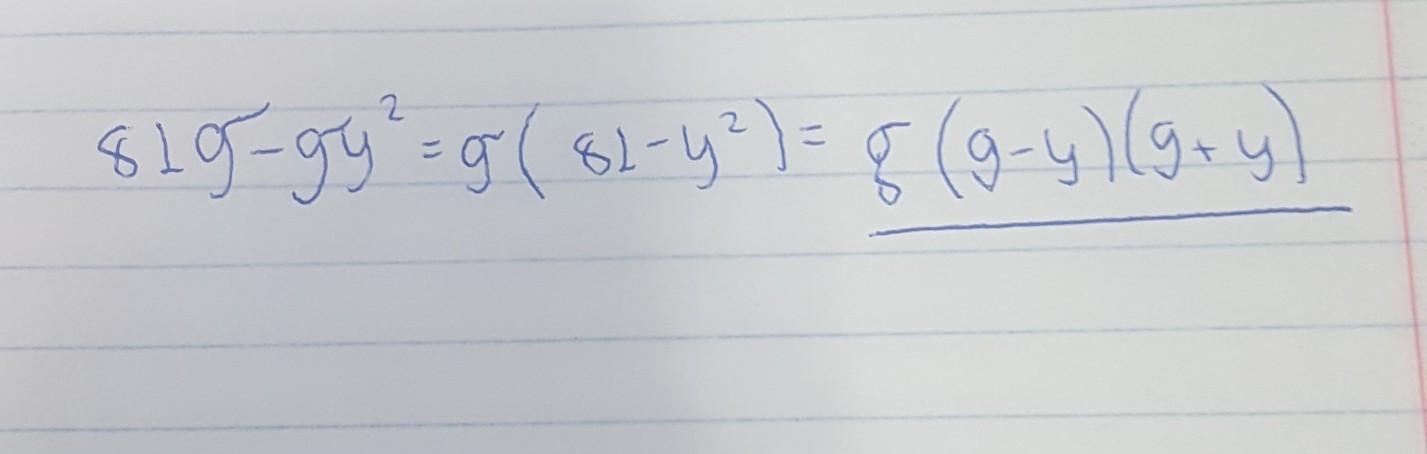 81g-gy²=g(81-y²)=g(9-y)(9+y)